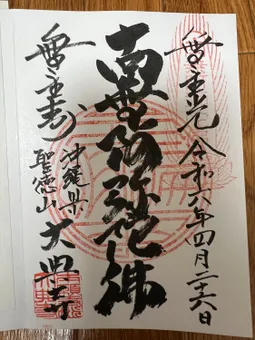 無量光 令和六年四月二十六日
南無阿弥陀佛
無量寿
沖縄県
聖徳山 大典寺